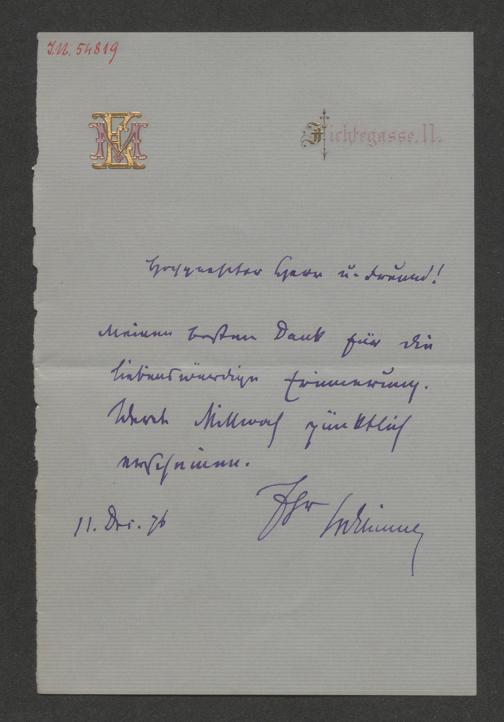 I.N. 54819
Fichtegasse. 11.
Hochgeehrter Herr u. Freund!
Meinen besten Dank für die
liebenswürdige Erinnerung.
Werde Mittwoch pünktlich
erscheinen.
Ihr
11. Dez. 76